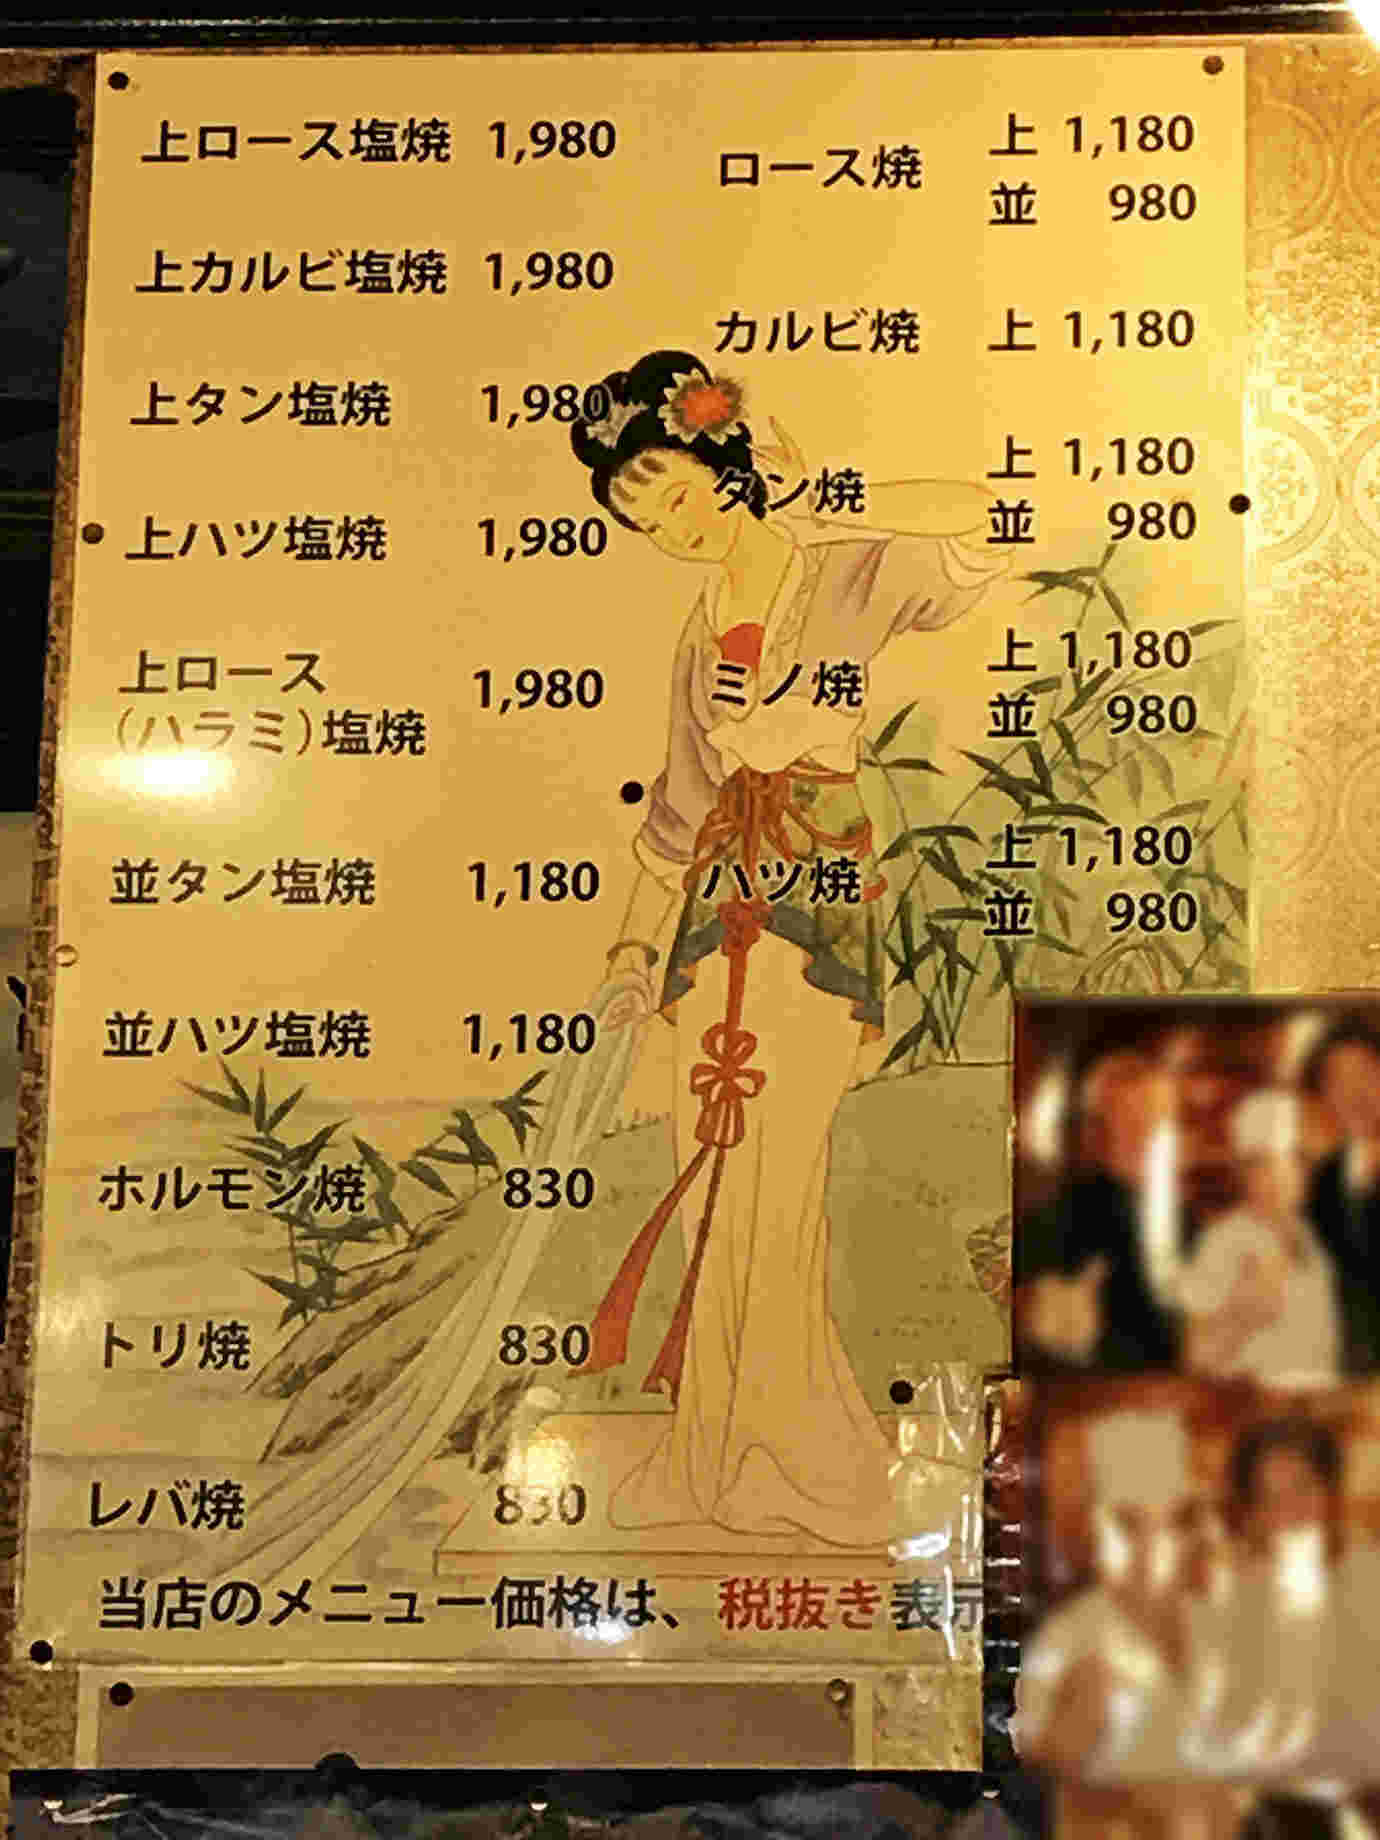 上ロース塩焼 1,980
上カルビ塩焼 1,980
上タン塩焼 1,980
上ハツ塩焼 1,980
上ロース
(ハラミ)塩焼 1,980
並タン塩焼 1,180
並ハツ塩焼 1,180
ホルモン焼 830
トリ焼 830
レバ焼 830
ロース焼 上 1,180
並 980
カルビ焼 上 1,180
タン焼 上 1,180
並 980
ミノ焼 上 1,180
並 980
ハツ焼 上 1,180
並 980
当店のメニュー価格は、税抜き表示